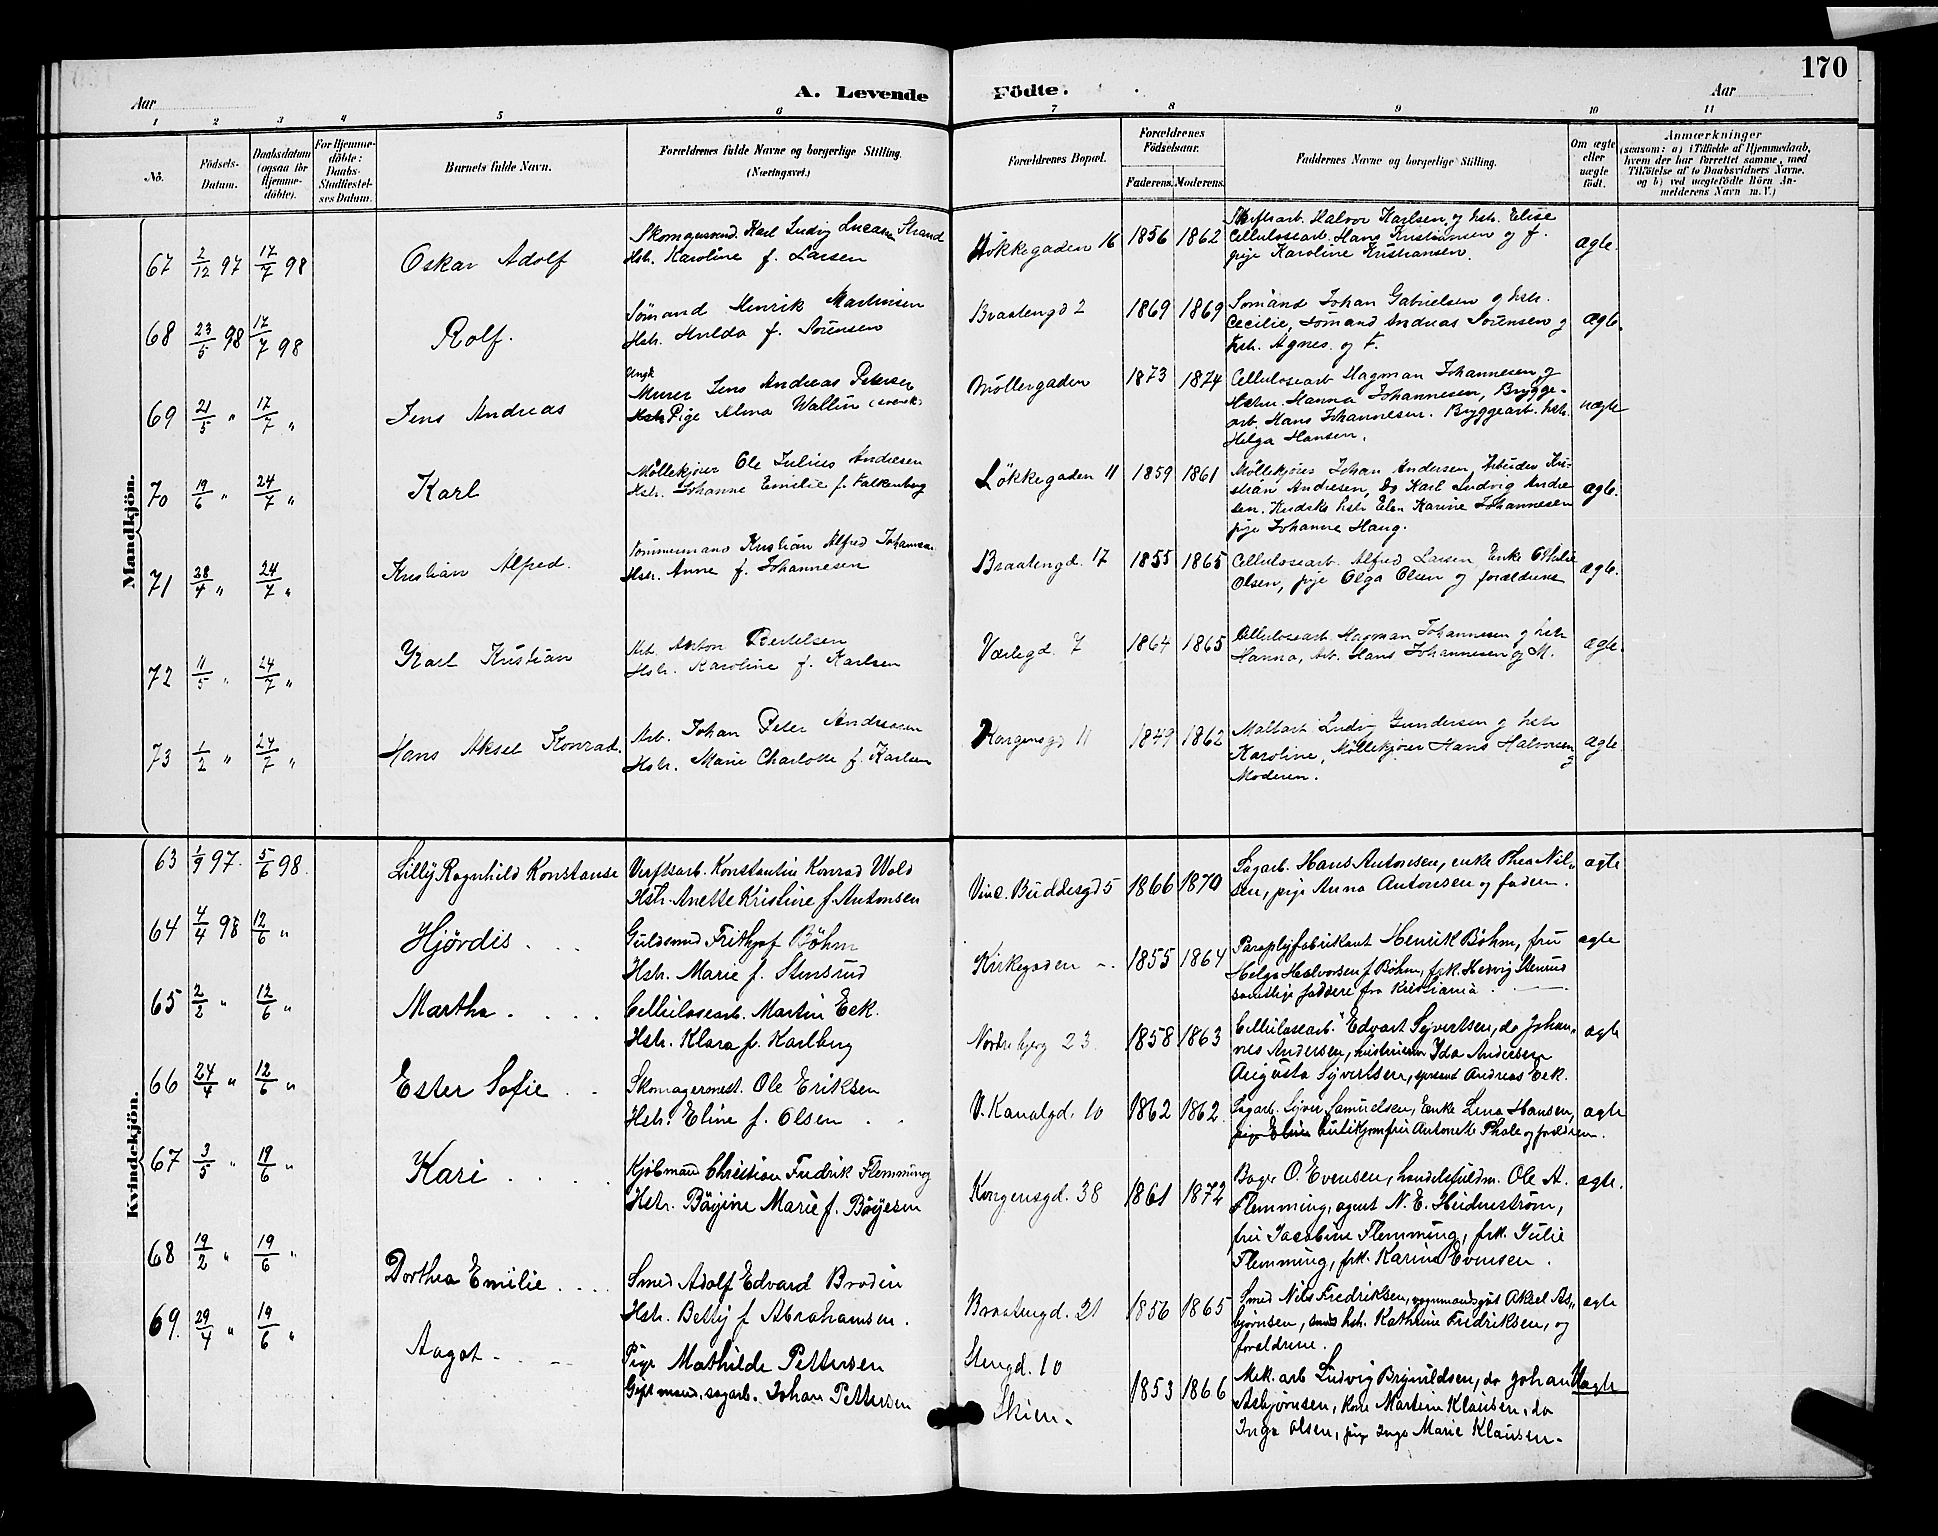 170
Aar
A. Levende
Födte.
Aar
1 2 3 4 5 6 7 8 9 10 11
No.
Födsels-
Datum.
Daabsdatum
(ogsaa for
Hjemme-
döbte).
For Hjemme-
döbte:
Daabs-
Stadfæstel-
ses Datum.
Barnets fulde Navn.
Forældrenes fulde Navne og borgerlige Stilling.
(Næringsvei.)
Forældrenes Bopæl.
Forældrenes
Födselsaar.
Faderens. Moderens.
Faddernes Navne og borgerlige Stilling.
Om ægte
eller
uægte
födt.
Anmærkninger
(saasom: a) i Tilfælde af Hjemmedaab,
hvem der har forrettet samme, med
Tilföielse af to Daabsvidners Navne.
og b) ved uægtefödte Börn An-
melderens Navn m. V.)
Mandkjön.
67 2/12 97 17/7 98 Oskar Adolf
Karl Ludvig Lucasen Strand
Hstr. Karoline f. Larsen
Løkkegaden 16 1856 1862
Halvor Karlsen og hstr. Elise
Cellulosearb. Hans Kristiansen og f.
pige Karoline Kristiansen.
ægte
68 23/5 98 17/7 98 Rolf.
Sømand Henrik Martinsen
Hstr. Hulda f. Sørensen
Braatengd 2 1869 1869
Sømand Johan Gabrielsen og hstr.
Cecilie, Sømand Andreas Sørensen og
hstr. Agnes. og F.
ægte.
69 21/5 " 17/7 " Jens Andreas
Ungk
Murer Jens Andreas Petersen
Hstr Pige Alma Wallin (svensk)
Møllergaden 1873 1874
Cellulosearb Hagman Johannesen og
Hstru. Hanna Johannesen, Brygge-
arb. Hans Johannesen. Bryggearb. hstr.
Helga Hansen.
uægte
70 19/6 " 24/7 " Karl
Møllekjører Ole Julius Andresen
Hstr. Johanne Emilie f. Falkenberg
Løkkegaden 11 1859 1861
Møllekjører Johan Andersen, Arbeider Kri-
stian Andresen, Do Karl Ludvig Andre
sen. hstr Elen Karine Johannesen
pige Johanne Haug.
ægte.
71 28/4 " 24/7 " Kristian Alfred.
Tømmermand Kristian Alfred Johansen
Hstr. Anne f. Johannesen
Braatengd. 17 1855 1865
Cellulosearb. Alfred Larsen Enke Othilie
Olsen, pige Olga Olsen og forældrene
ægte.
72 11/5 " 24/7 " Karl Kristian
Arb. Anton Bertelsen
Hstr. Karoline f. Karlsen
Værlegd. 7 1864 1865
Cellulosearb. Hagman Johannesen og hstr
Hanna, Arb. Hans Johannesen og M.
ægte.
73 1/2 " 24/7 " Hans Aksel Konrad.
Arb. Johan Peter Andreasen
Hstr. Marie Charlotte f. Karlsen
Kongensgd 11 1849 1862
Maltarb Ludvig Gundersen og hstr
Karoline, Møllekjører Hans Halvorsen og
Moderen.
ægte
Kvindekjön.
63 1/9 97. 5/6 98. Lilly Ragnhild Konstanse
Verftsarb. Konstantin Konrad Wold
Hstr. Anette Kristine f. Antonsen
Vinc. Buddesgd 5 1866 1870
Sagarb. Hans Antonsen, enke Thea Nil-
sen, pige Anna Antonsen og faderen.
ægte
64 4/4 98 12/6 " Hjördis
Guldsmed Frithjof Böhm
Hstr. Marie f. Stensrud
Kirkegaden 1855 1864
Paraplyfabrikant Henrik Böhm, fru
Helga Halvorsen f. Böhm, frk. Hedvig Stenrud
samtlige faddere fra Kristiania.
ægte
65 2/2 " 12/6 " Martha
Cellulosearb. Martin Eek.
Hstr. Klara f. Karlberg
Nordrebjerg 23. 1858 1863
Cellulosearb. Edvart Syvertsen, do Johan-
nes Andersen, hustruerne Ida Andersen
Augusta Syvertsen, Andreas Eek.
ægte
66 24/4 " 12/6 " Ester Sofie
Skomagermest. Ole Eriksen
Hstr. Eline f. Olsen
V. Kanalgd. 10 1862 1862.
Sagarb. Syver Samuelsen, Enke Lina Hansen,
butikjomfru Antonette Thale og forældrene.
ægte
67 3/5 " 19/6 " Kari
Kjöbmand Christian Fredrik Flemming
Hstr. Böyine Marie f. Böyesen
Kongensgd. 38 1861 1872
Bager O. Evensen, handelsfuldm. Ole A.
Flemming, agent N. E. Heidenström,
fru Jacobine Flemming, frk. Julie
Flemming, frk. Karine Evensen.
ægte.
68 19/2 " 19/6 " Dorthea Emilie
Smed Adolf Edvard Brodin
Hstr. Betty f Abrahamsen.
Braatengd. 21 1856 1865
Smed Nils Fredriksen, Aksel As-
bjørnsen, hstr. Kathrine Fredriksen, og
forældrene.
ægte
69. 29/4 " 19/6 " Aagot
Pige Mathilde Pettersen
Gift mand, sagarb. Johan Pettersen
Stengd. 10
Skien. 1853 1866
Mek. arb Ludvig Brynildsen, do Johan
Asbjørnsen, kone Martine Klausen, do
Inga Olsen, pige Inga Marie Klausen.
Uægte